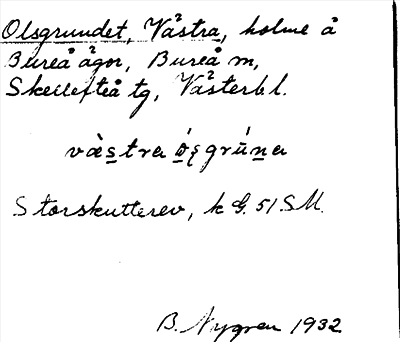 Olsgrundet, Västra, holme å
Bureå ågor, Bureå m,
Skellefteå tg, Västerbl.
Storskutterev, k G. 51. SM.
B. Nygren 1932